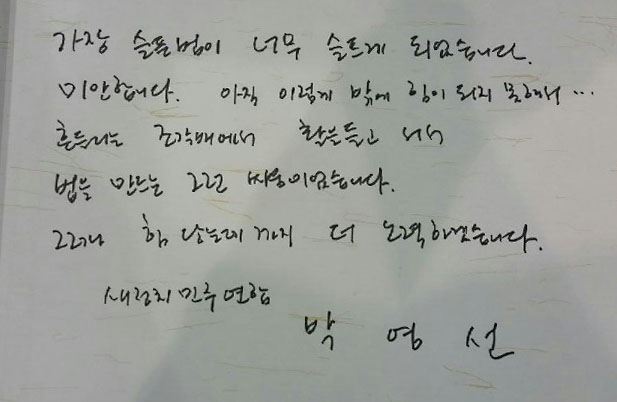 가장 슬픈법이 너무 슬프게 되었습니다.
미안합니다. 아직 이렇게 밖에 힘이 되지 못해서 ...
흔들리는 조각배에서 활을들고 서서
법을 만드는 그런 싸움이었습니다.
그러나 힘 닿는데 까지 더 노력하겠습니다.
새정치민주연합
박 영 선